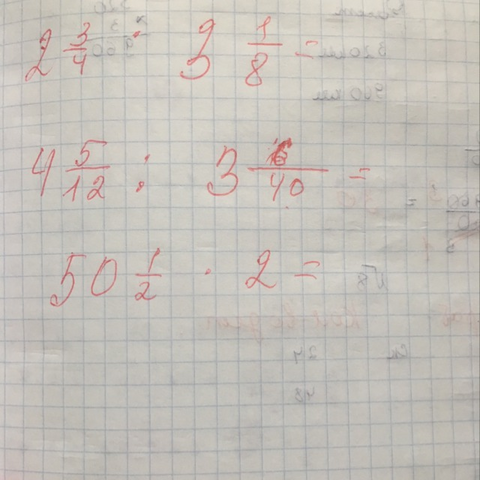 2 3/4 : 3 1/8 =
4 5/12 : 3 /40 =
50 1/2 · 2 =